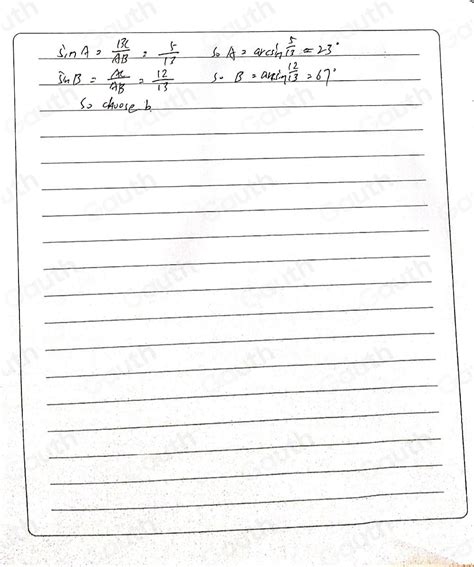 sin A = BC/AB = 5/13 So A = arcsin 5/13 = 23°
sin B = AC/AB = 12/13 So B = arcsin 12/13 = 67°
So choose b.
Gauth